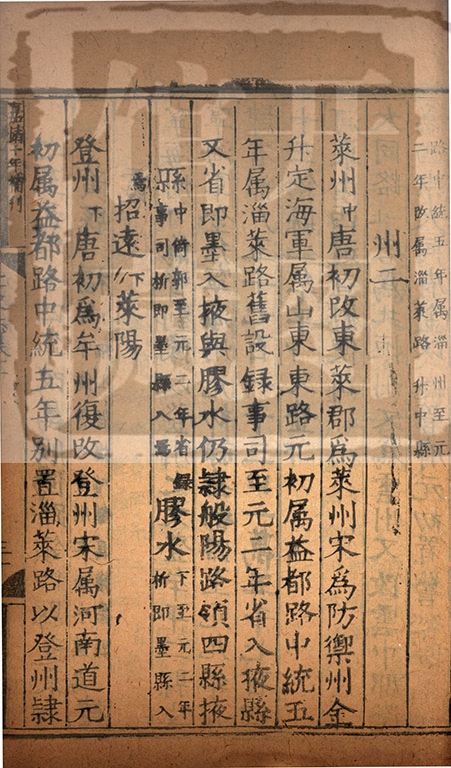 路中統五年属淄州至元
二年改属淄萊路升中縣
州二
萊州中唐初改東萊郡爲萊州宋爲防禦州金
升定海軍属山東東路元初属益都路中統五
年属淄萊路舊設録事司至元二年省入掖縣
又省即墨入掖與膠水仍隸般陽路領四縣掖
縣中倚郭至元二年省録
事司析即墨縣入焉
膠水
下至元二年
析即墨縣入
焉
招遠下萊陽
下
登州下唐初爲牟州復改登州宋属河南道元
初属益都路中統五年別置淄萊路以登州隸
嘉靖十年補刊